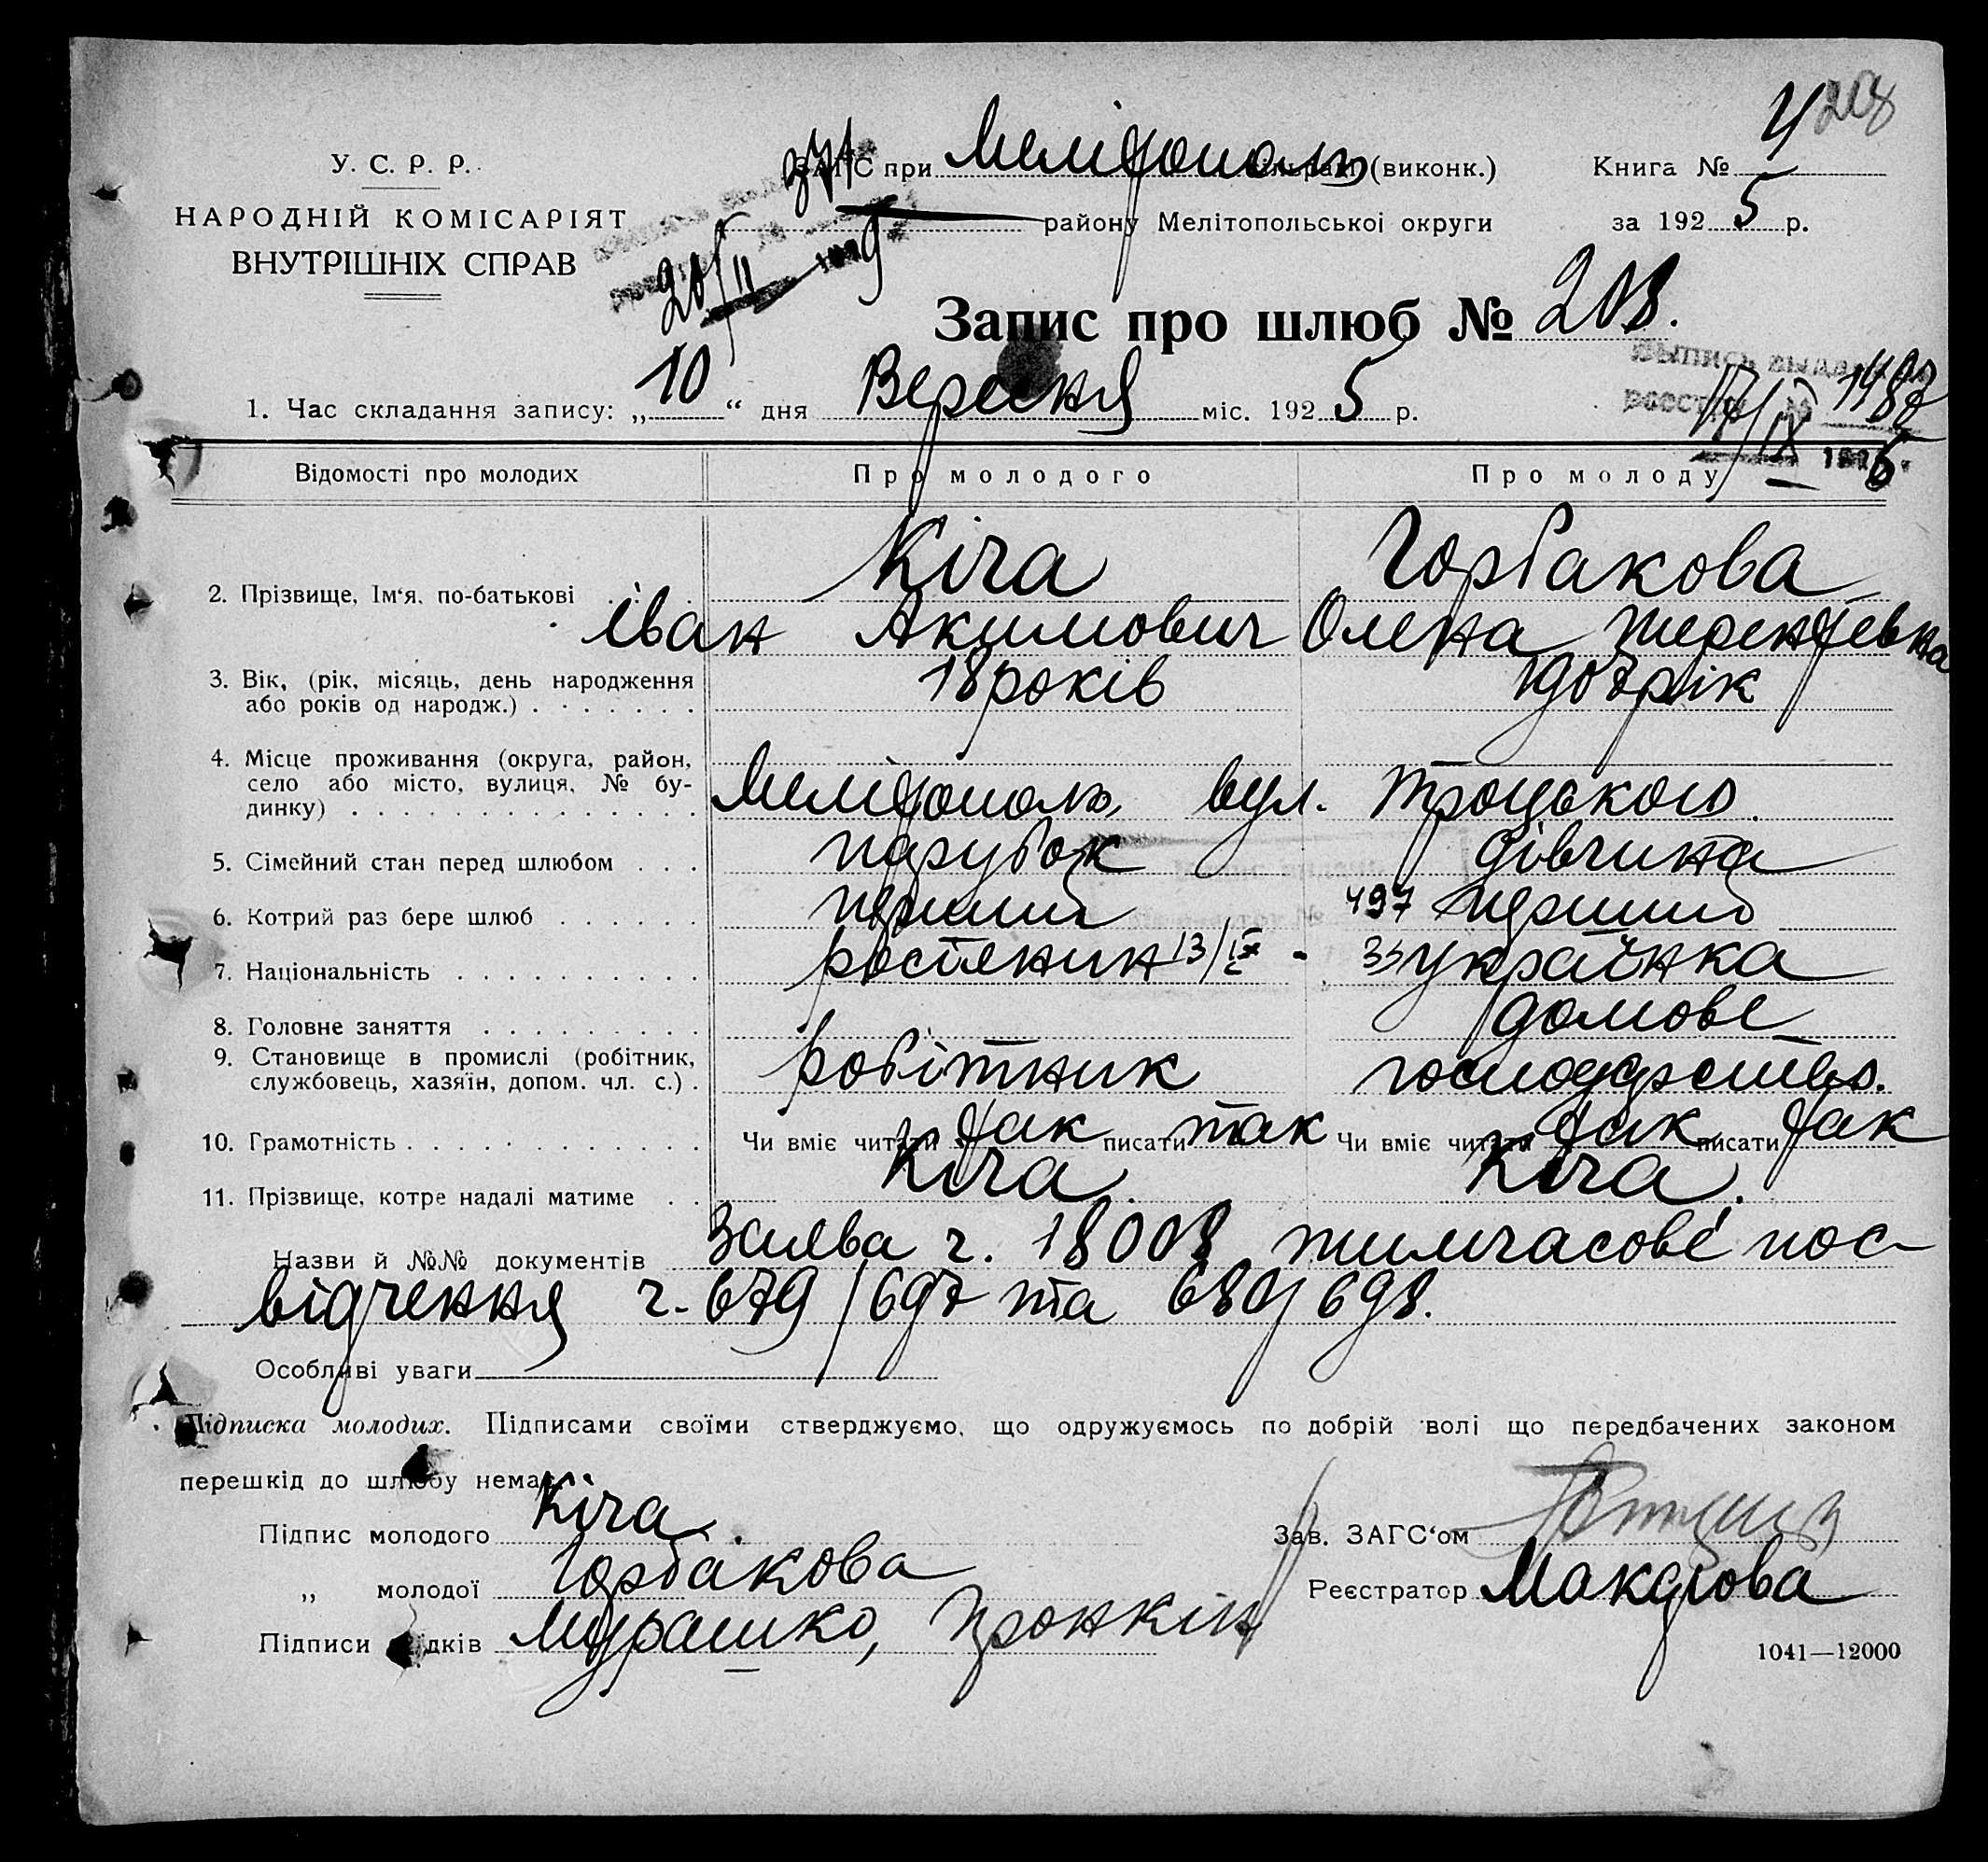 4 208
У. С. Р. Р.
ЗАГС при Мелітополь (виконк.) Книга №
НАРОДНІЙ КОМІСАРІЯТ
району Мелітопольскоі округи за 1925 р.
ВНУТРІШНІХ СПРАВ
20/II
Запис про шлюб № 208.
1. Час складання запису: „10“ дня Вересня міс. 1925 р.
Выпись выда
реестр № 1482
17/IX 1925
Відомості про молодих Про молодого Про молоду
2. Прізвище, Ім‘я, по-батькові Кіча Горбакова
Іван Акимович Олена Терентьевна
3. Вік, (рік, місяць, день народження 18 років 1907 рік
або років од народж.)
4. Місце проживання (округа, район,
село або місто, вулиця, № бу-
динку) Мелітополь вул. Троцького.
5. Сімейний стан перед шлюбом парубок дівчина
6. Котрий раз бере шлюб перший 497 перший
7. Національність росіянин 13/IX - українка
8. Головне заняття домове
9. Становище в промислі (робітник, робітник господарство.
службовець, хазяїн, допом. чл. с.)
10. Грамотність Чи вміє читати так писати так Чи вміє читати так писати так
11. Прізвище, котре надалі матиме Кіча Кіча.
Назви й №№ документів Заява ч. 18008 тимчасове пос-
відчення ч. 679/697 та 680/698.
Особливі уваги
Підписка молодих. Підписами своїми стверджуємо, що одружуємось по добрій волі що передбачених законом
перешкід до шлюбу немає
Підпис молодого Кіча. Зав. ЗАГС‘ом
„ молодої Горбакова Реєстратор Макарова
Підписи дків Мурашко, Пронкін
1041—12000